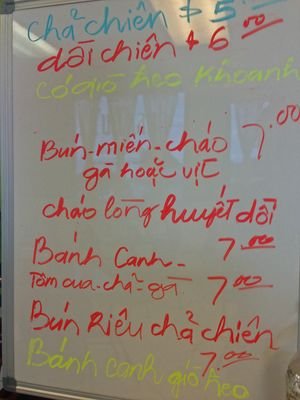 chả chiên $ 5.00
dồi chiên $ 6.00
có giò heo khoanh
Bún-miến-cháo 7.00
gà hoặc vịt
cháo lòng huyết dồi
Bánh Canh- 7.00
Tôm cua-chả-gà 7.00
Bún Riêu chả chiên
7.00
Bánh canh giò heo